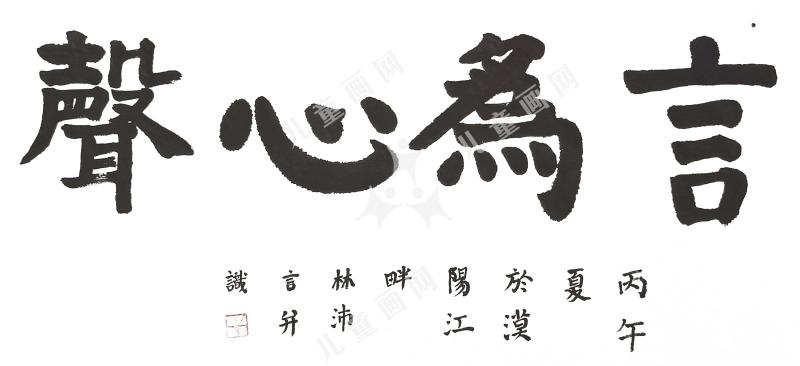 言為心聲
丙午
夏
於漠
陽江
畔
林沛
言并
識
儿童画网